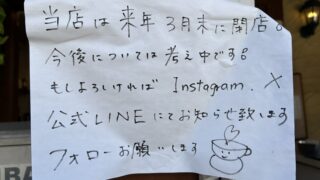 当店は来年3月末に閉店。
今後については考え中です。
もしよろしければ Instagram. X
公式LINEにてお知らせ致します
フォローお願いします